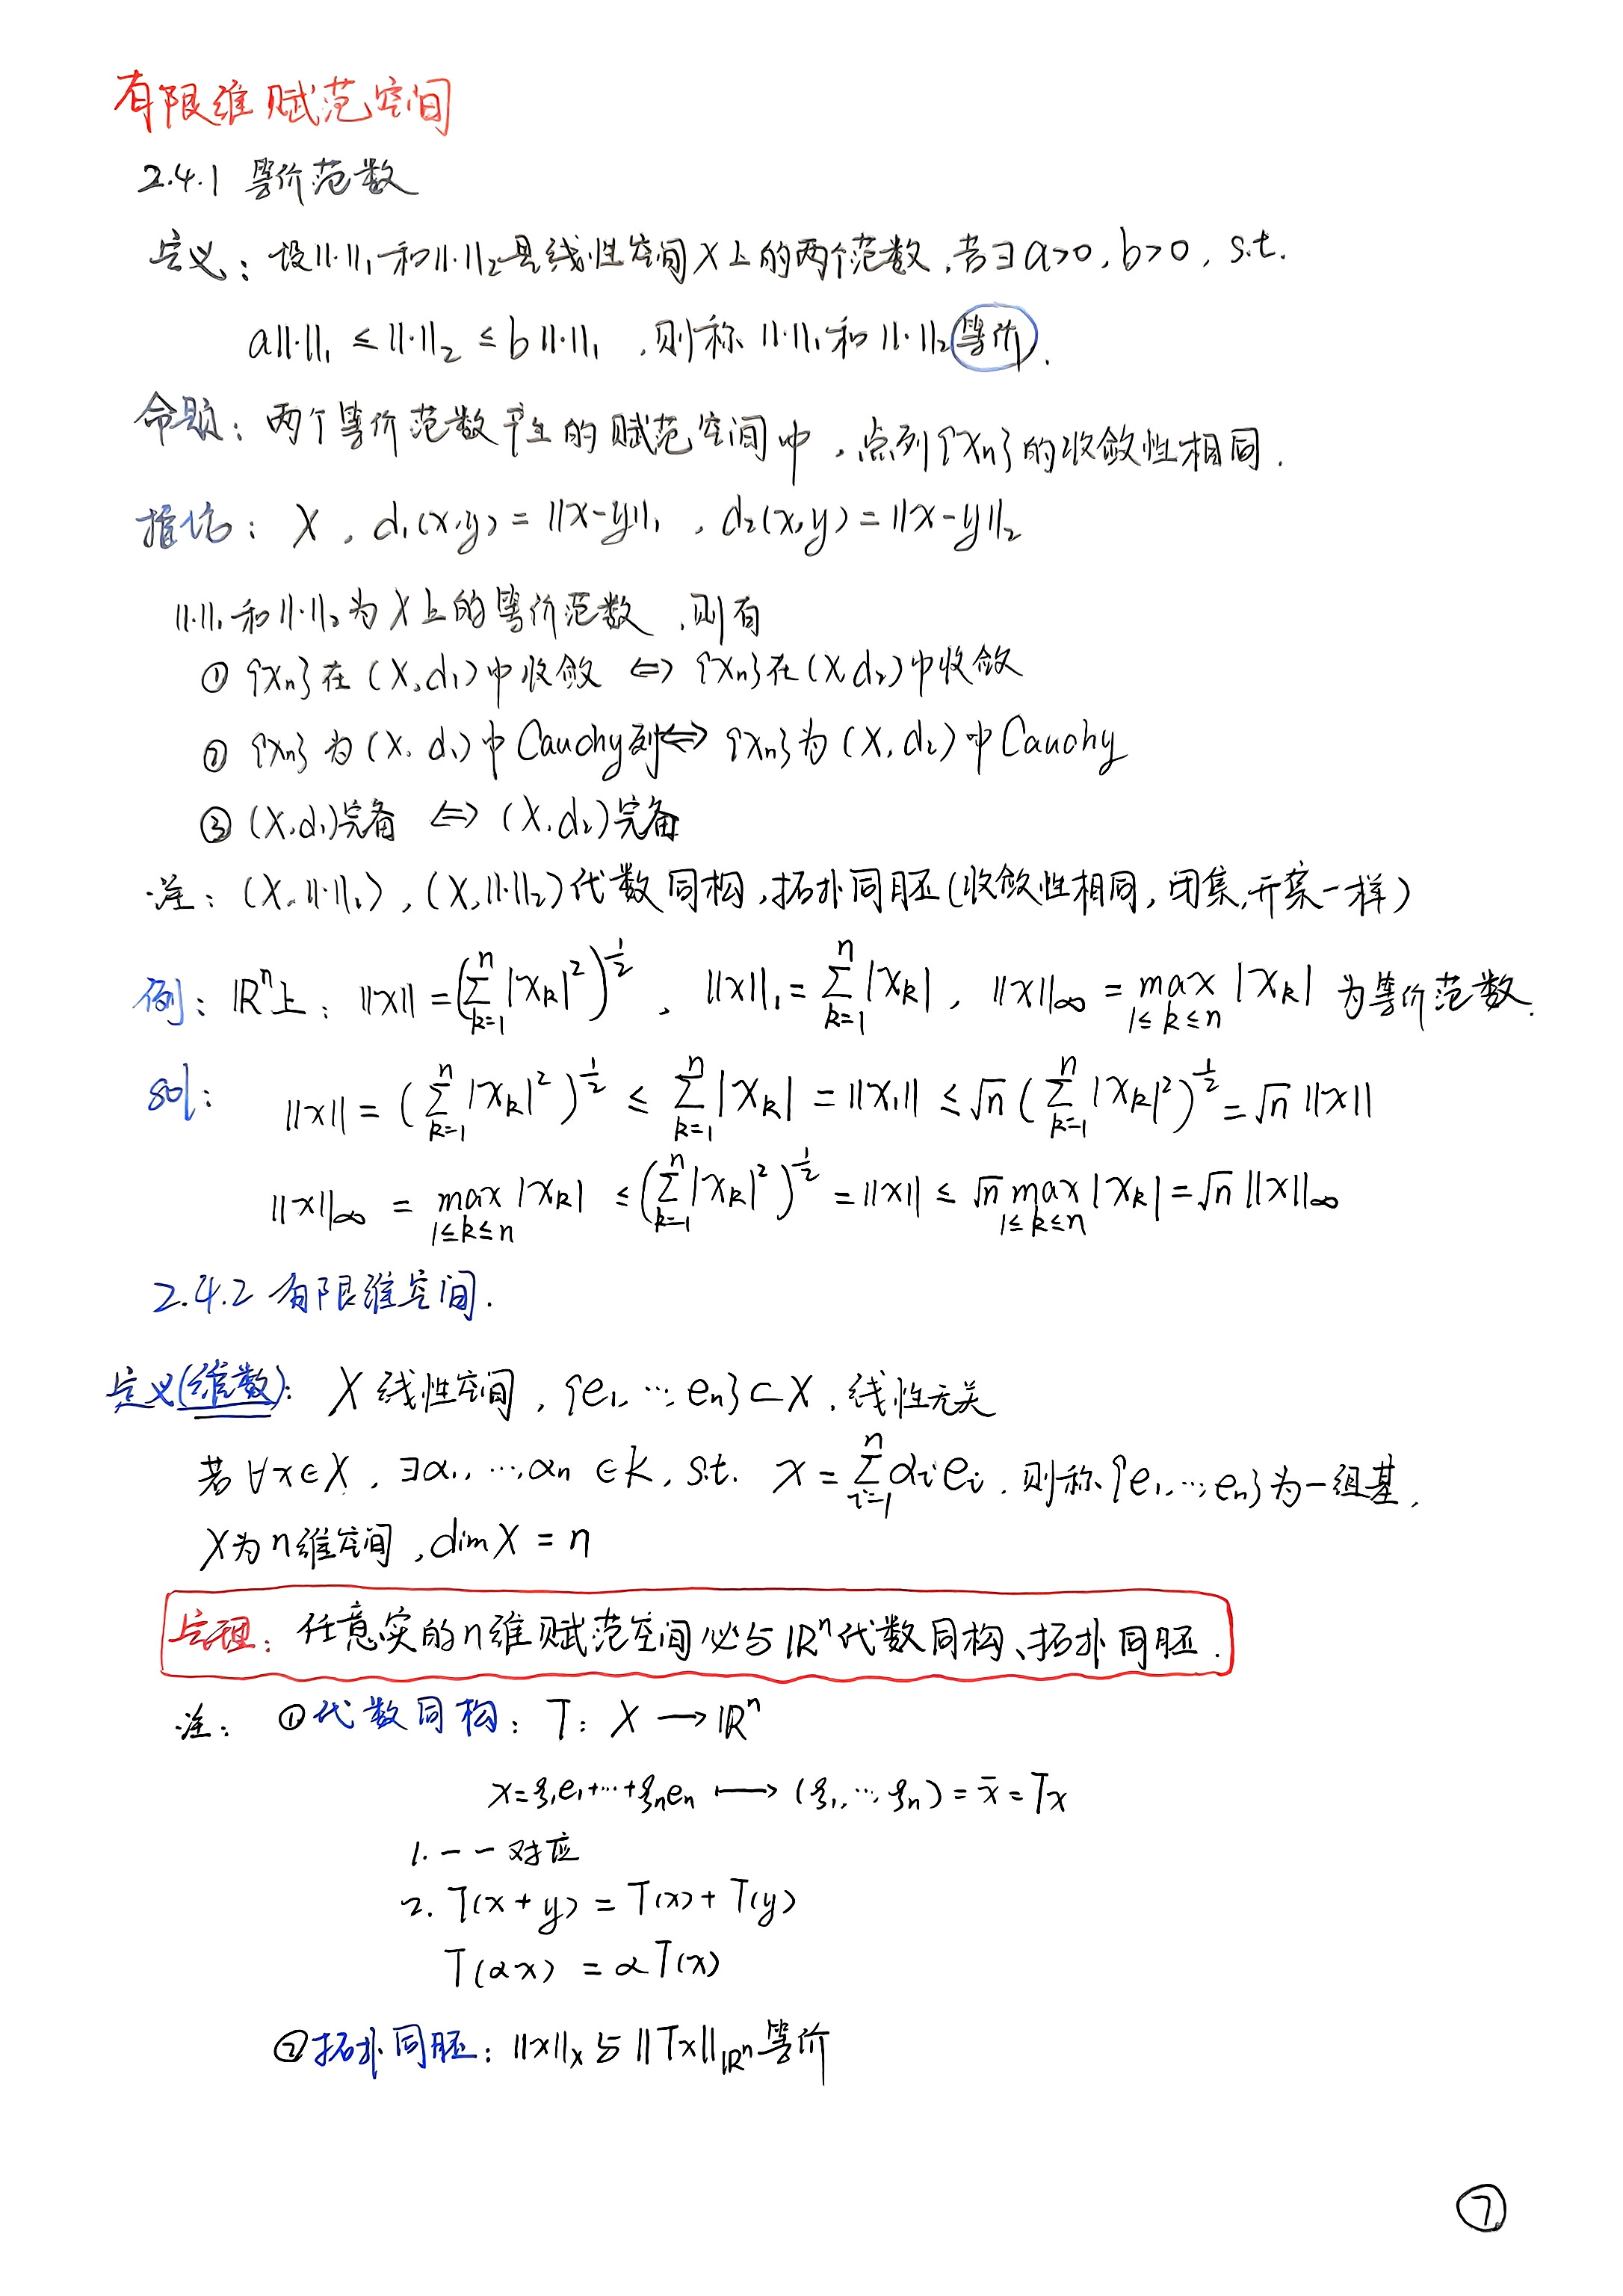 有限维赋范空间
2.4.1 等价范数
定义：设||·||₁和||·||₂是线性空间X上的两个范数，若∃a>0, b>0, s.t.
a||·||₁ ≤ ||·||₂ ≤ b||·||₁，则称||·||₁和||·||₂等价.
命题：两个等价范数产生的赋范空间中，点列{xₙ}的收敛性相同.
推论：X，d₁(x,y)=||x-y||₁，d₂(x,y)=||x-y||₂
||·||₁和||·||₂为X上的等价范数，则有
① {xₙ}在(X,d₁)中收敛 ⇔ {xₙ}在(X,d₂)中收敛
② {xₙ}为(X,d₁)中Cauchy列⇔ {xₙ}为(X,d₂)中Cauchy
③ (X,d₁)完备 ⇔ (X,d₂)完备
注：(X,||·||₁)，(X,||·||₂)代数同构，拓扑同胚(收敛性相同，闭集，开集一样)
例：ℝⁿ上：||x||=(∑_{k=1}^{n}|x_k|²)^{1/2}，||x||₁=∑_{k=1}^{n}|x_k|，||x||_∞=max_{1≤k≤n}|x_k| 为等价范数.
sol: ||x||=(∑_{k=1}^{n}|x_k|²)^{1/2} ≤ ∑_{k=1}^{n}|x_k| = ||x₁|| ≤ √n(∑_{k=1}^{n}|x_k|²)^{1/2} = √n||x||
||x||_∞ = max_{1≤k≤n}|x_k| ≤ (∑_{k=1}^{n}|x_k|²)^{1/2} = ||x|| ≤ √n max_{1≤k≤n}|x_k| = √n||x||_∞
2.4.2 有限维空间.
定义(维数)：X线性空间，{e₁,…,eₙ}⊂X，线性无关
若∀x∈X，∃α₁,…,αₙ∈K, s.t. x=∑_{i=1}^{n}αᵢeᵢ，则称{e₁,…,eₙ}为一组基，
X为n维空间，dim X = n
定理：任意实的n维赋范空间必与ℝⁿ代数同构、拓扑同胚.
注：①代数同构：T: X → ℝⁿ
x=ξ₁e₁+…+ξₙeₙ ⟼ (ξ₁,…,ξₙ)=x̄=Tx
1. 一一对应
2. T(x+y)=T(x)+T(y)
T(αx)=αT(x)
②拓扑同胚：||x||_X 与 ||Tx||_{ℝⁿ} 等价
⑦